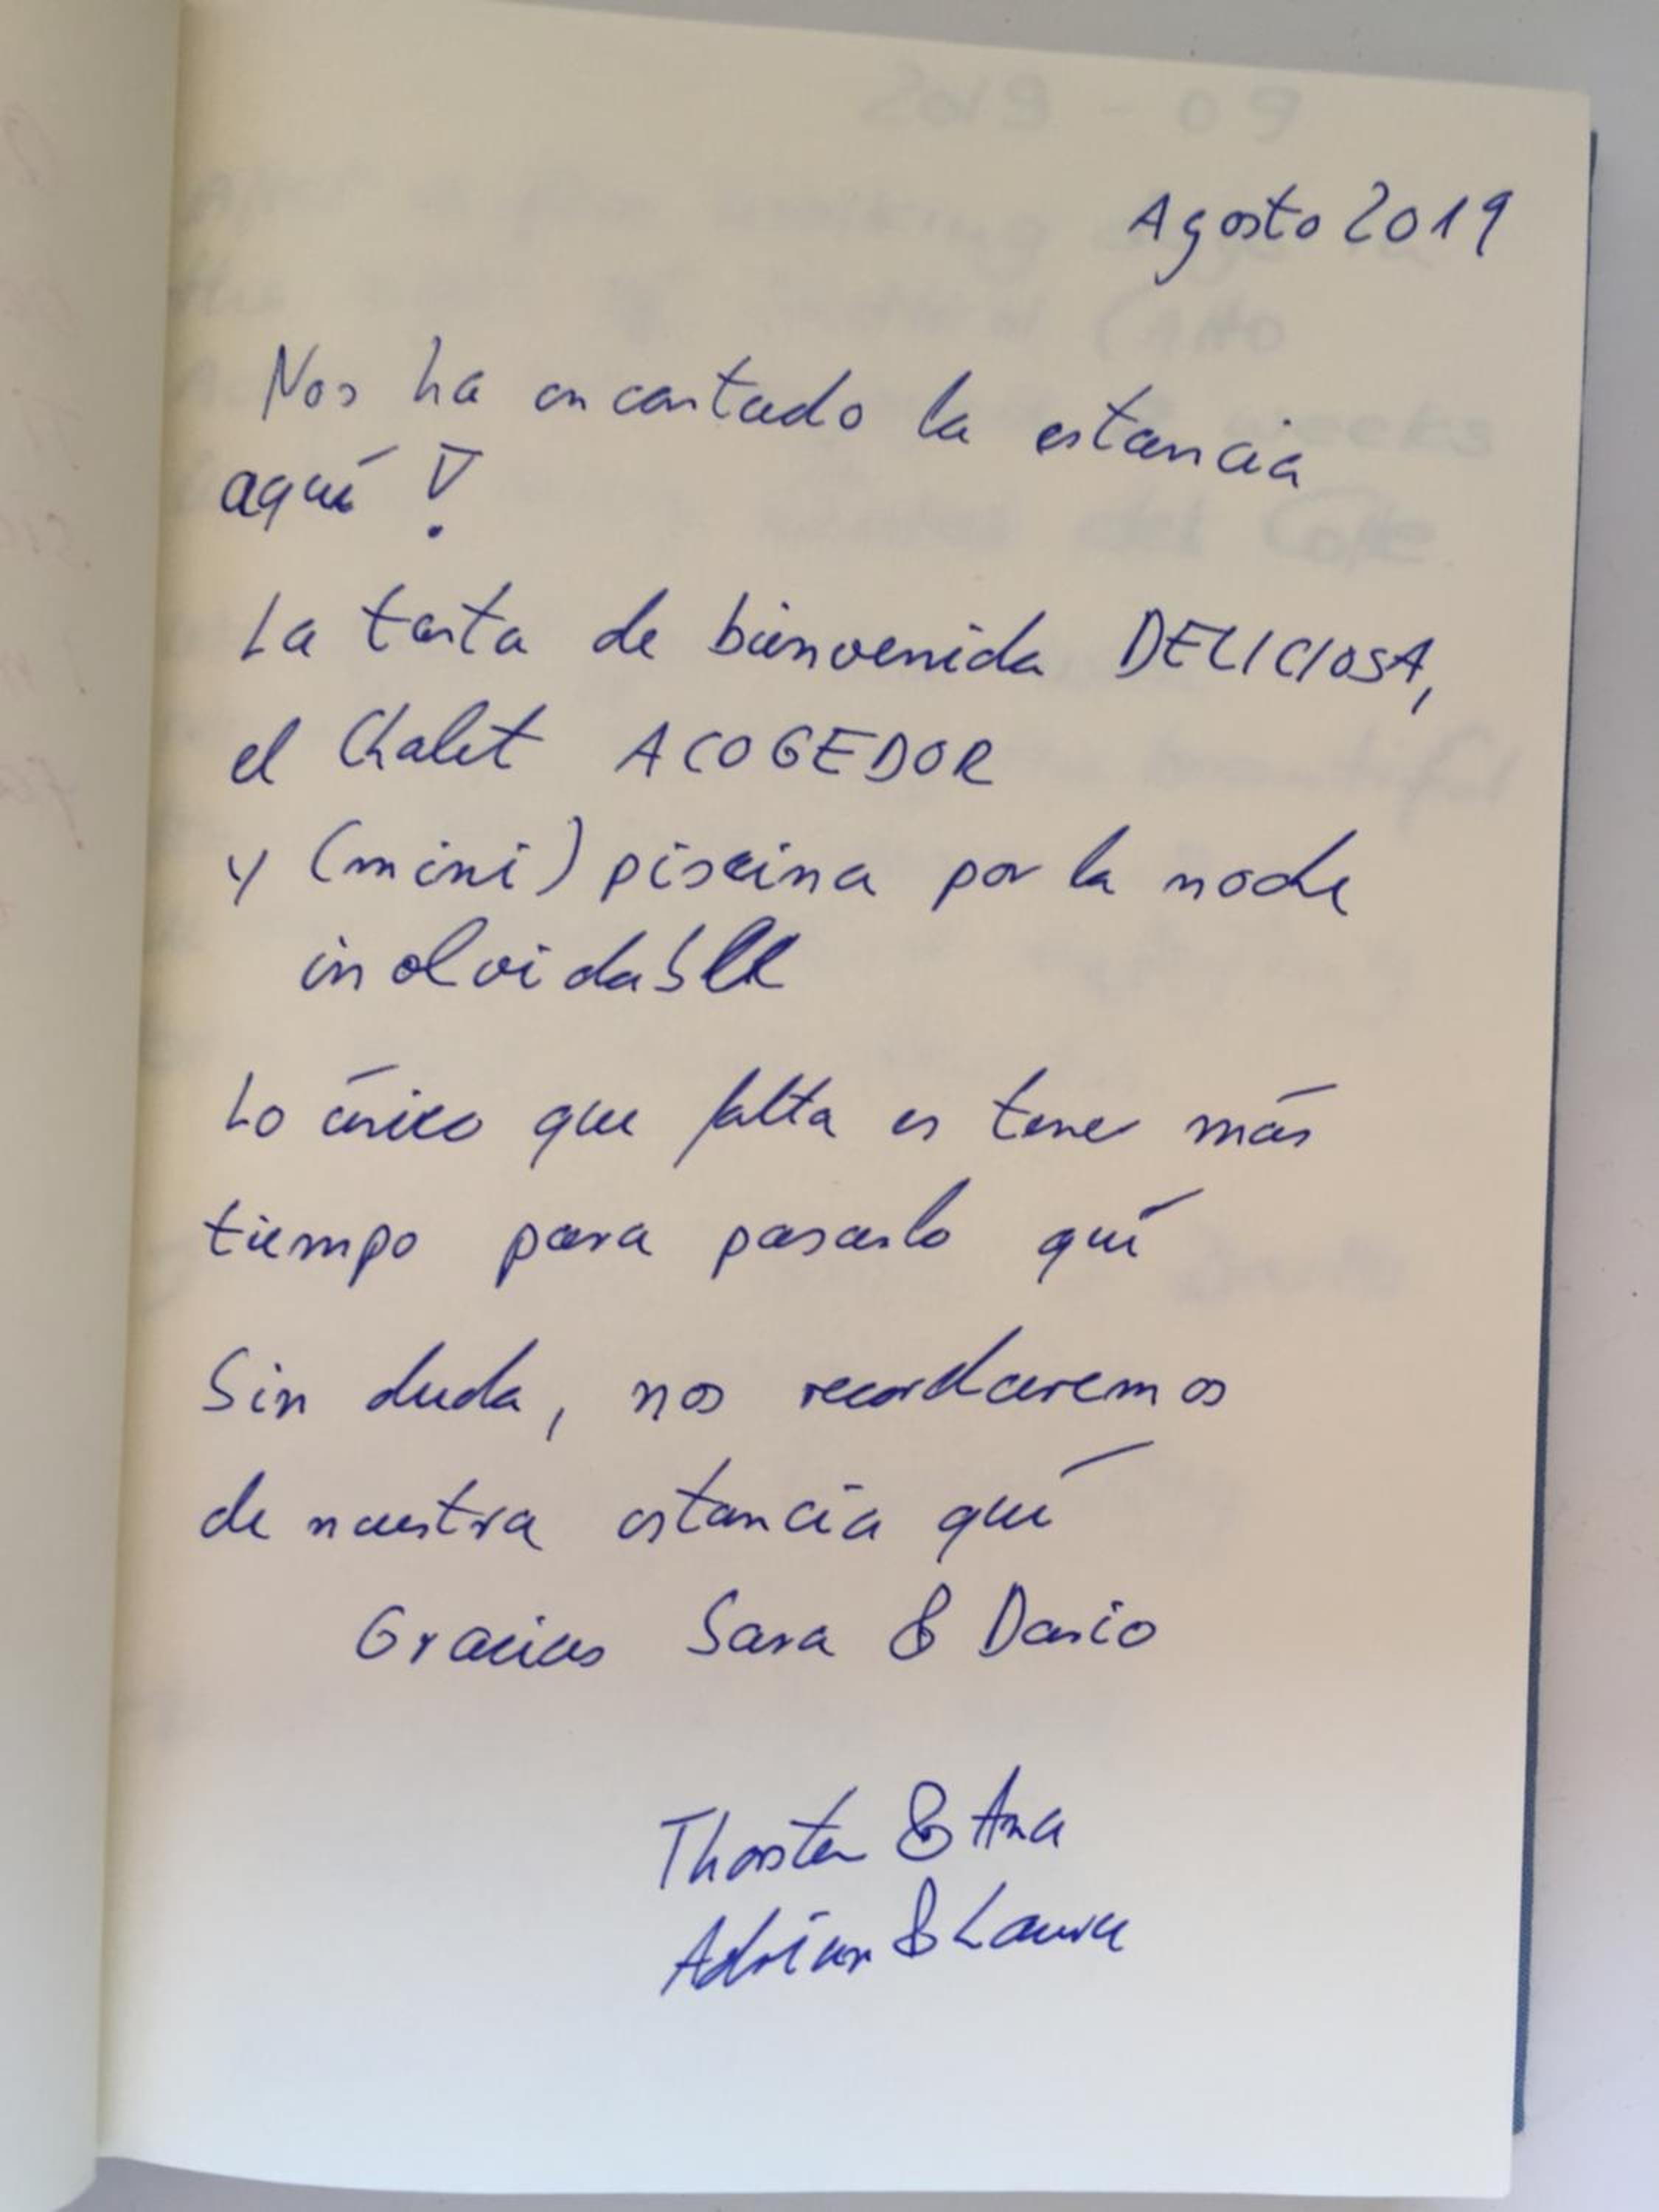 Agosto 2019
Nos ha encantado la estancia
aquí!
La tarta de bienvenida DELICIOSA,
el Chalet ACOGEDOR
y (mini) piscina por la noche
inolvidable
Lo único que falta es tener más
tiempo para pasarlo quí
Sin duda, nos recordaremos
de nuestra estancia quí
Gracias Sara & Dario
Thorsten & Ana
Adrian & Laura